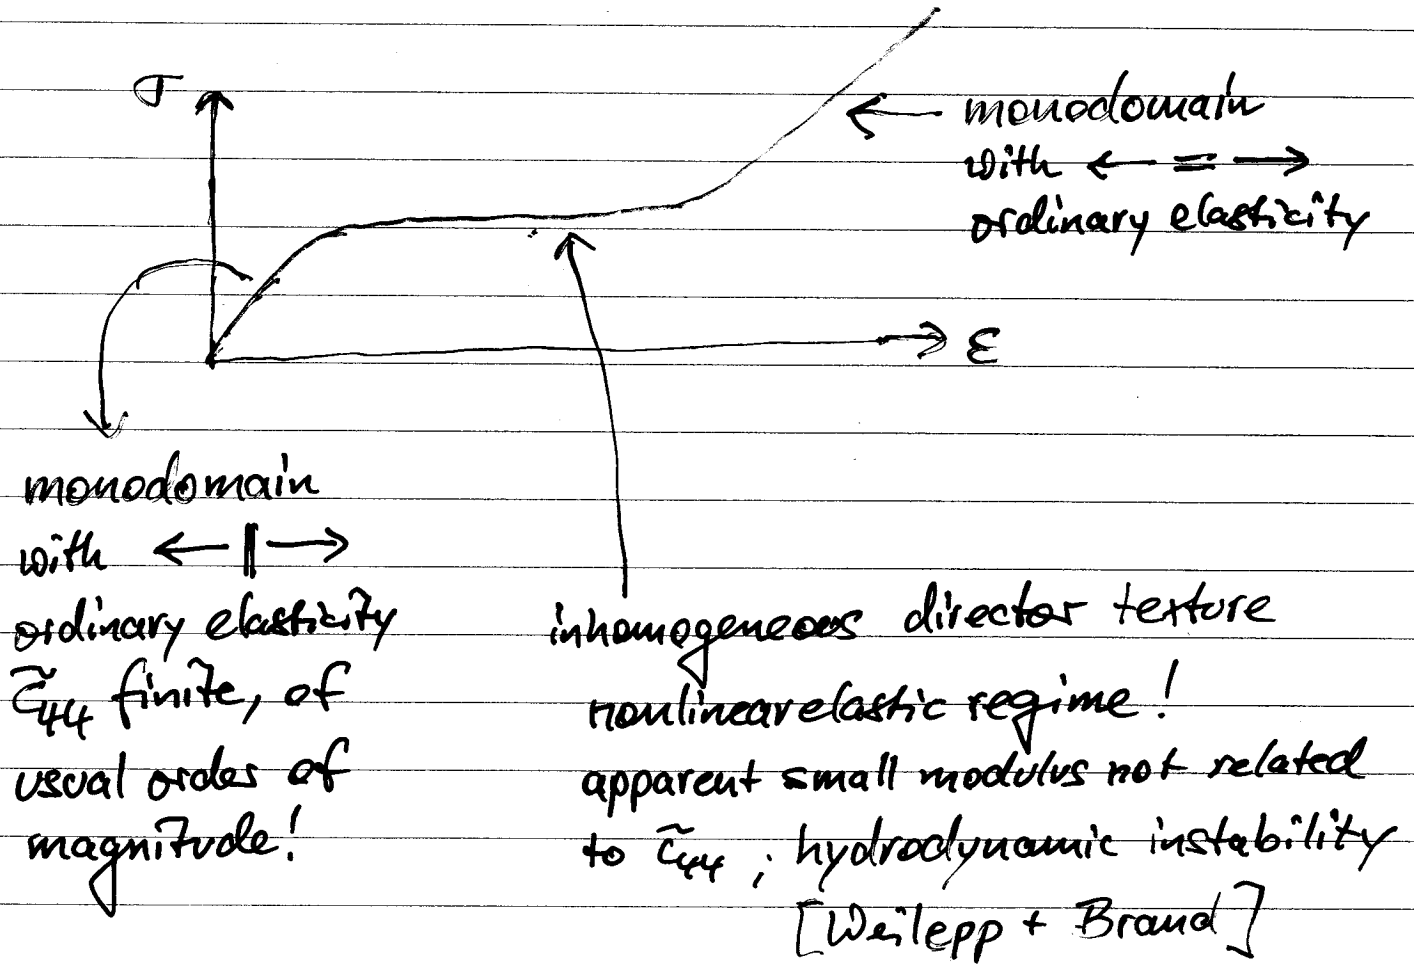 σ
monodomain
with ← = →
ordinary elasticity
ε
monodomain
with ← || →
ordinary elasticity
c̃₄₄ finite, of
usual order of
magnitude!
inhomogeneous director texture
nonlinear elastic regime!
apparent small modulus not related
to c̃₄₄ ; hydrodynamic instability
[Weilepp + Brand]